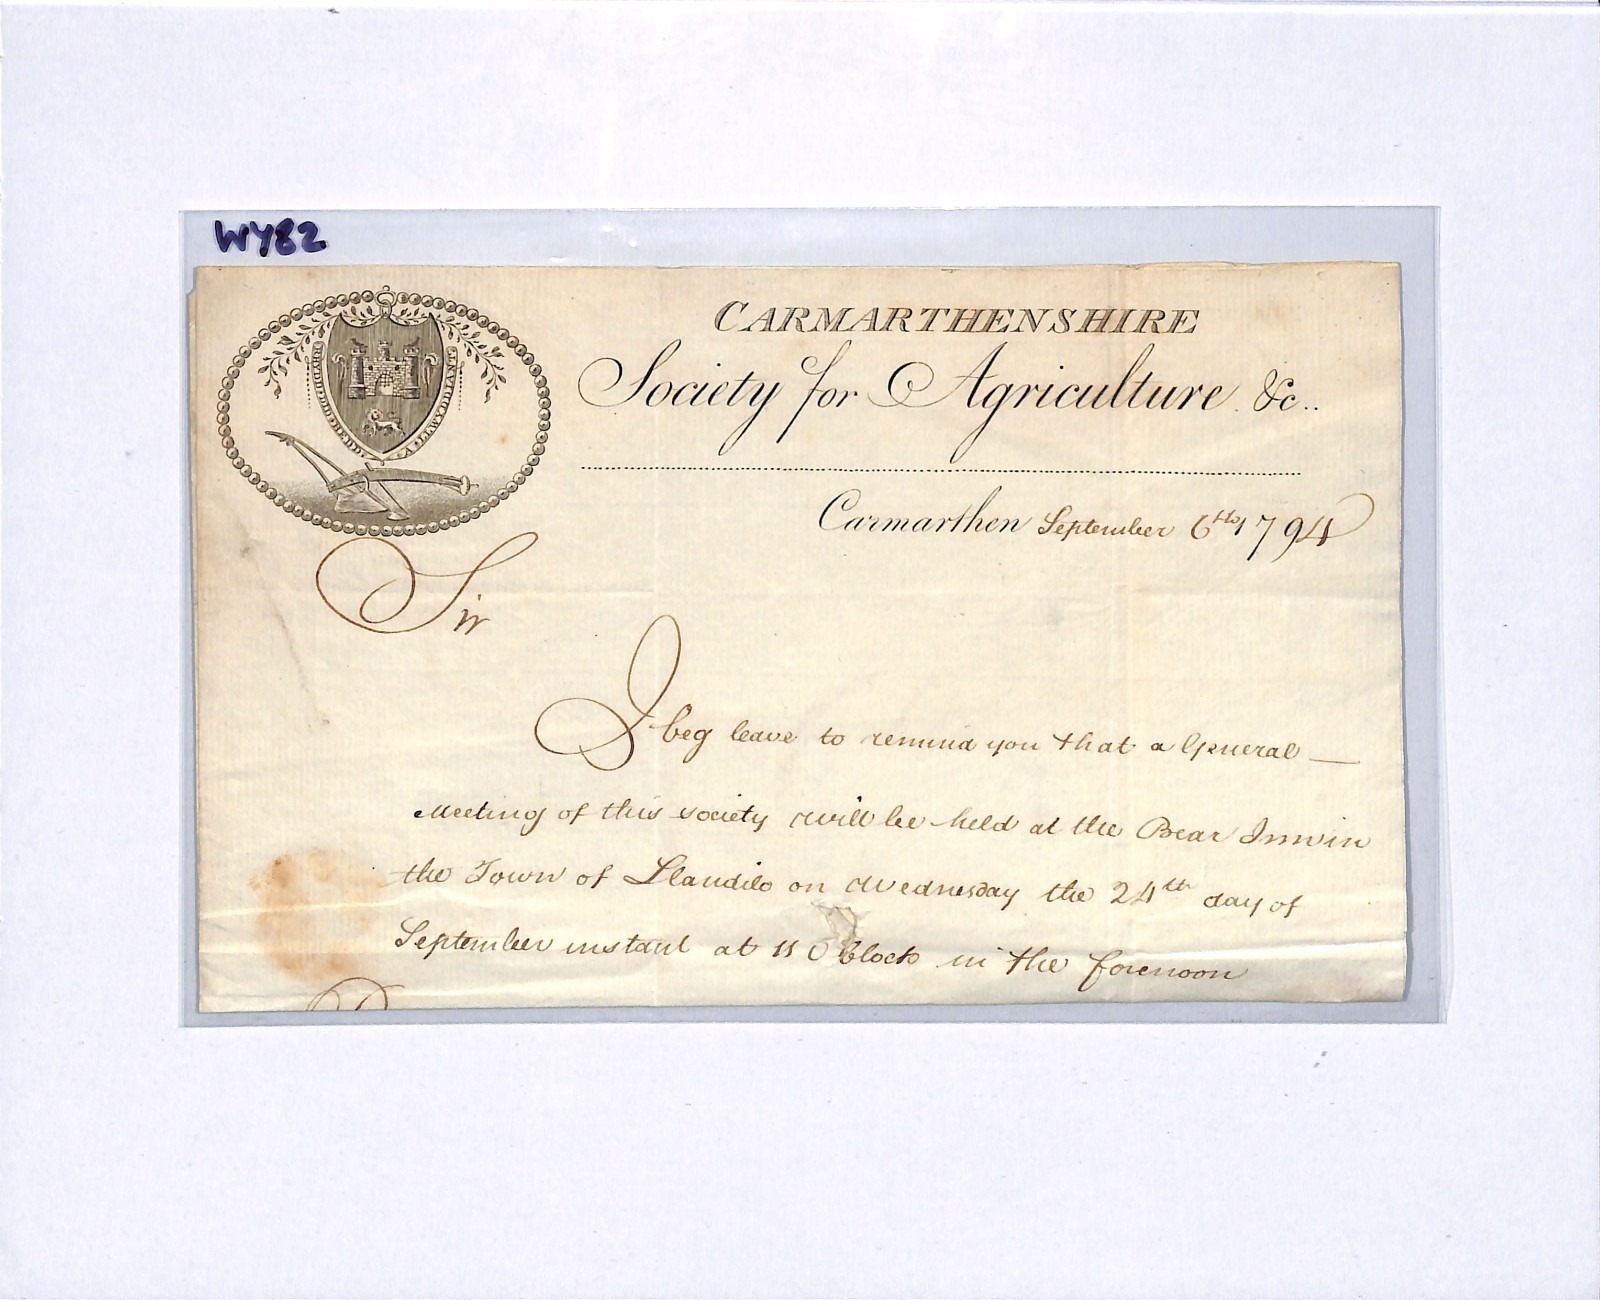 WY82
CARMARTHENSHIRE
Society for Agriculture &c..
RHYDDID HEDD A LLWYDDIANT
Carmarthen September 6th 1794
Sir
I beg leave to remind you that a General
Meeting of this society will be held at the Bear Inn in
the Town of Llandilo on Wednesday the 24th day of
September instant at 11 O Clock in the forenoon